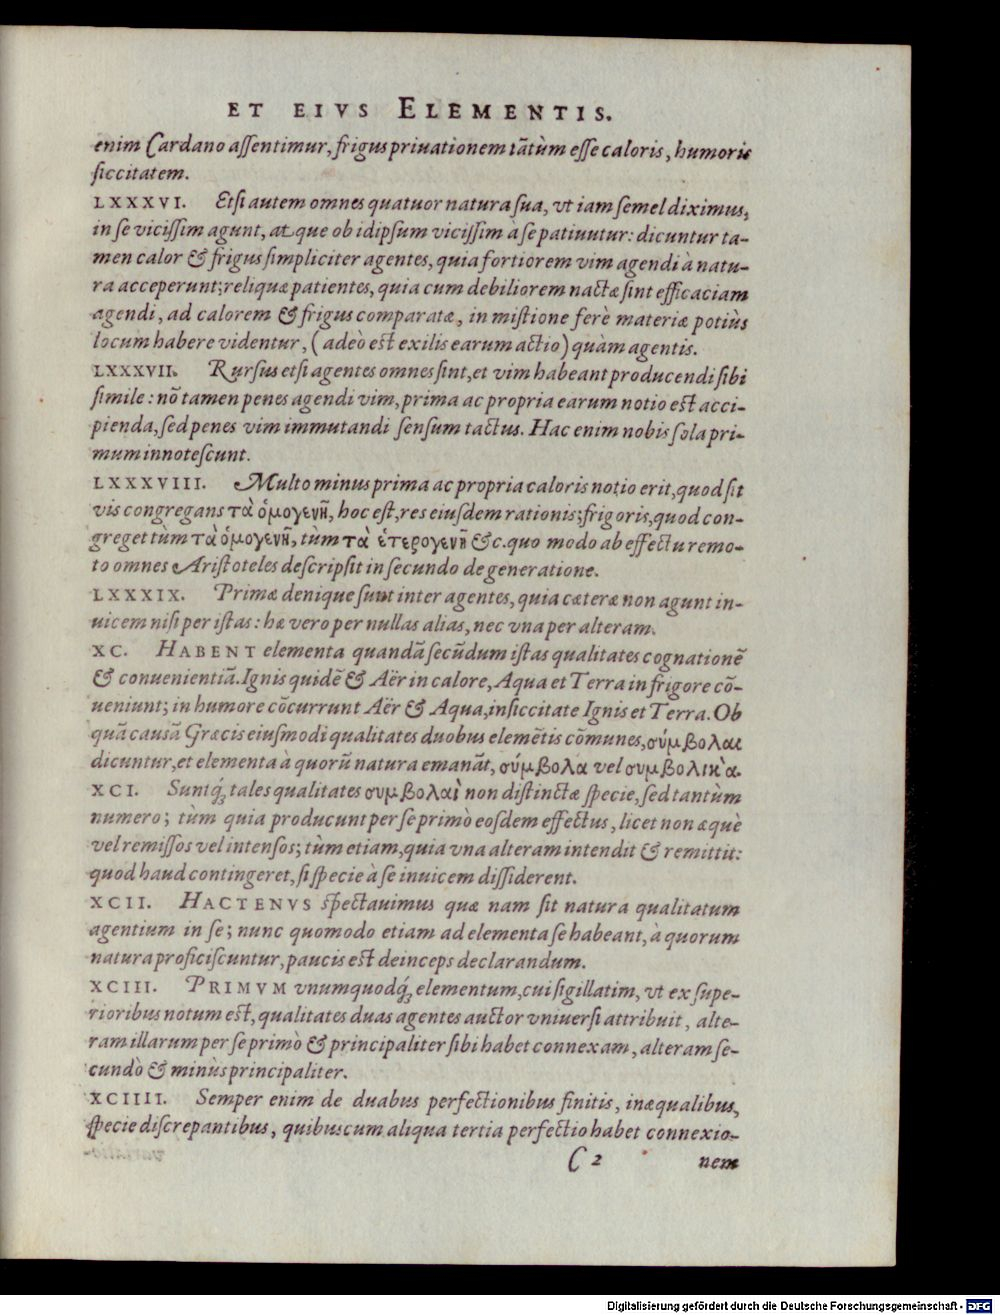 ET EIVS ELEMENTIS.
enim Cardano aſſentimur, frigus priuationem tãtùm eſſe caloris, humoris
ſiccitatem.
LXXXVI. Etſi autem omnes quatuor natura ſua, vt iam ſemel diximus,
in ſe viciſſim agunt, atque ob idipſum viciſſim à ſe patiuutur: dicuntur ta-
men calor & frigus ſimpliciter agentes, quia fortiorem vim agendi à natu-
ra acceperunt; reliquæ patientes, quia cum debiliorem nactæ ſint efficaciam
agendi, ad calorem & frigus comparatæ, in miſtione ferè materiæ potiùs
locum habere videntur, (adeò eſt exilis earum actio) quàm agentis.
LXXXVII. Rurſus etſi agentes omnes ſint, et vim habeant producendi ſibi
ſimile: nõ tamen penes agendi vim, prima ac propria earum notio eſt acci-
pienda, ſed penes vim immutandi ſenſum tactus. Hac enim nobis ſola pri-
mum innoteſcunt.
LXXXVIII. Multo minus prima ac propria caloris notio erit, quod ſit
vis congregans τὰ ὁμογενῆ, hoc eſt, res eiuſdem rationis; frigoris, quod con-
greget tùm τὰ ὁμογενῆ, tùm τὰ ἑτερογενῆ &c. quo modo ab effectu remo-
to omnes Ariſtoteles deſcripſit in ſecundo de generatione.
LXXXIX. Primæ denique ſunt inter agentes, quia cæteræ non agunt in-
uicem niſi per iſtas: hæ vero per nullas alias, nec vna per alteram.
XC. HABENT elementa quandã ſecũdum iſtas qualitates cognationẽ
& conuenientiã. Ignis quidẽ & Aër in calore, Aqua et Terra in frigore cõ-
ueniunt; in humore cõcurrunt Aër & Aqua, in ſiccitate Ignis et Terra. Ob
quã cauſã Græcis eiuſmodi qualitates duobus elemẽtis cõmunes, σύμβολαι
dicuntur, et elementa à quorũ natura emanãt, σύμβολα vel συμβολικὰ.
XCI. Suntq́; tales qualitates συμβολαὶ non diſtinctæ ſpecie, ſed tantùm
numero; tùm quia producunt per ſe primò eoſdem effectus, licet non æquè
vel remiſſos vel intenſos; tùm etiam, quia vna alteram intendit & remittit:
quod haud contingeret, ſi ſpecie à ſe inuicem diſſiderent.
XCII. HACTENVS ſpectauimus quæ nam ſit natura qualitatum
agentium in ſe; nunc quomodo etiam ad elementa ſe habeant, à quorum
natura proficiſcuntur, paucis eſt deinceps declarandum.
XCIII. PRIMVM vnumquodq́; elementum, cui ſigillatim, vt ex ſupe-
rioribus notum eſt, qualitates duas agentes auctor vniuerſi attribuit, alte-
ram illarum per ſe primò & principaliter ſibi habet connexam, alteram ſe-
cundò & minùs principaliter.
XCIIII. Semper enim de duabus perfectionibus finitis, inæqualibus,
ſpecie diſcrepantibus, quibuscum aliqua tertia perfectio habet connexio-
C 2 nem
Digitalisierung gefördert durch die Deutsche Forschungsgemeinschaft - DFG